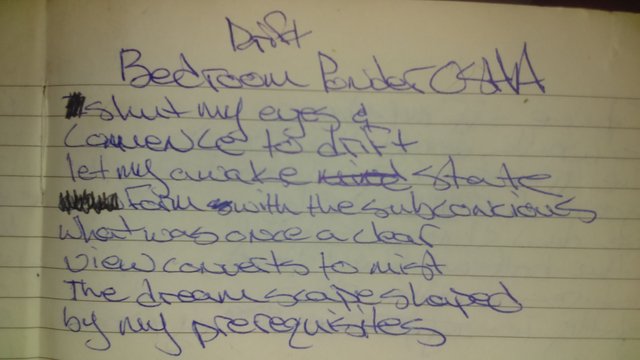 Drift
Bedroom Ponder
shut my eyes &
comence to drift
let my awake state
form with the subconcious
what was once a clear
view converts to mist
The dreamscape shaped
by my prerequisites